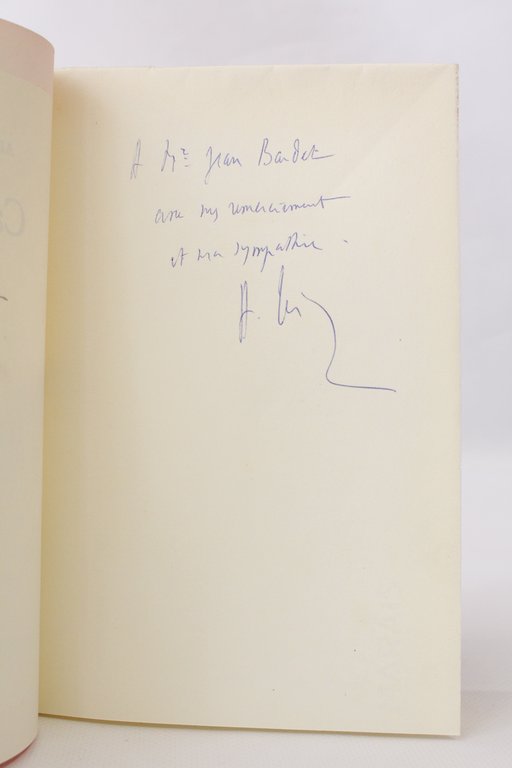 A Mr Jean Bardet
avec mes remerciement
et ma sympathie.
A.